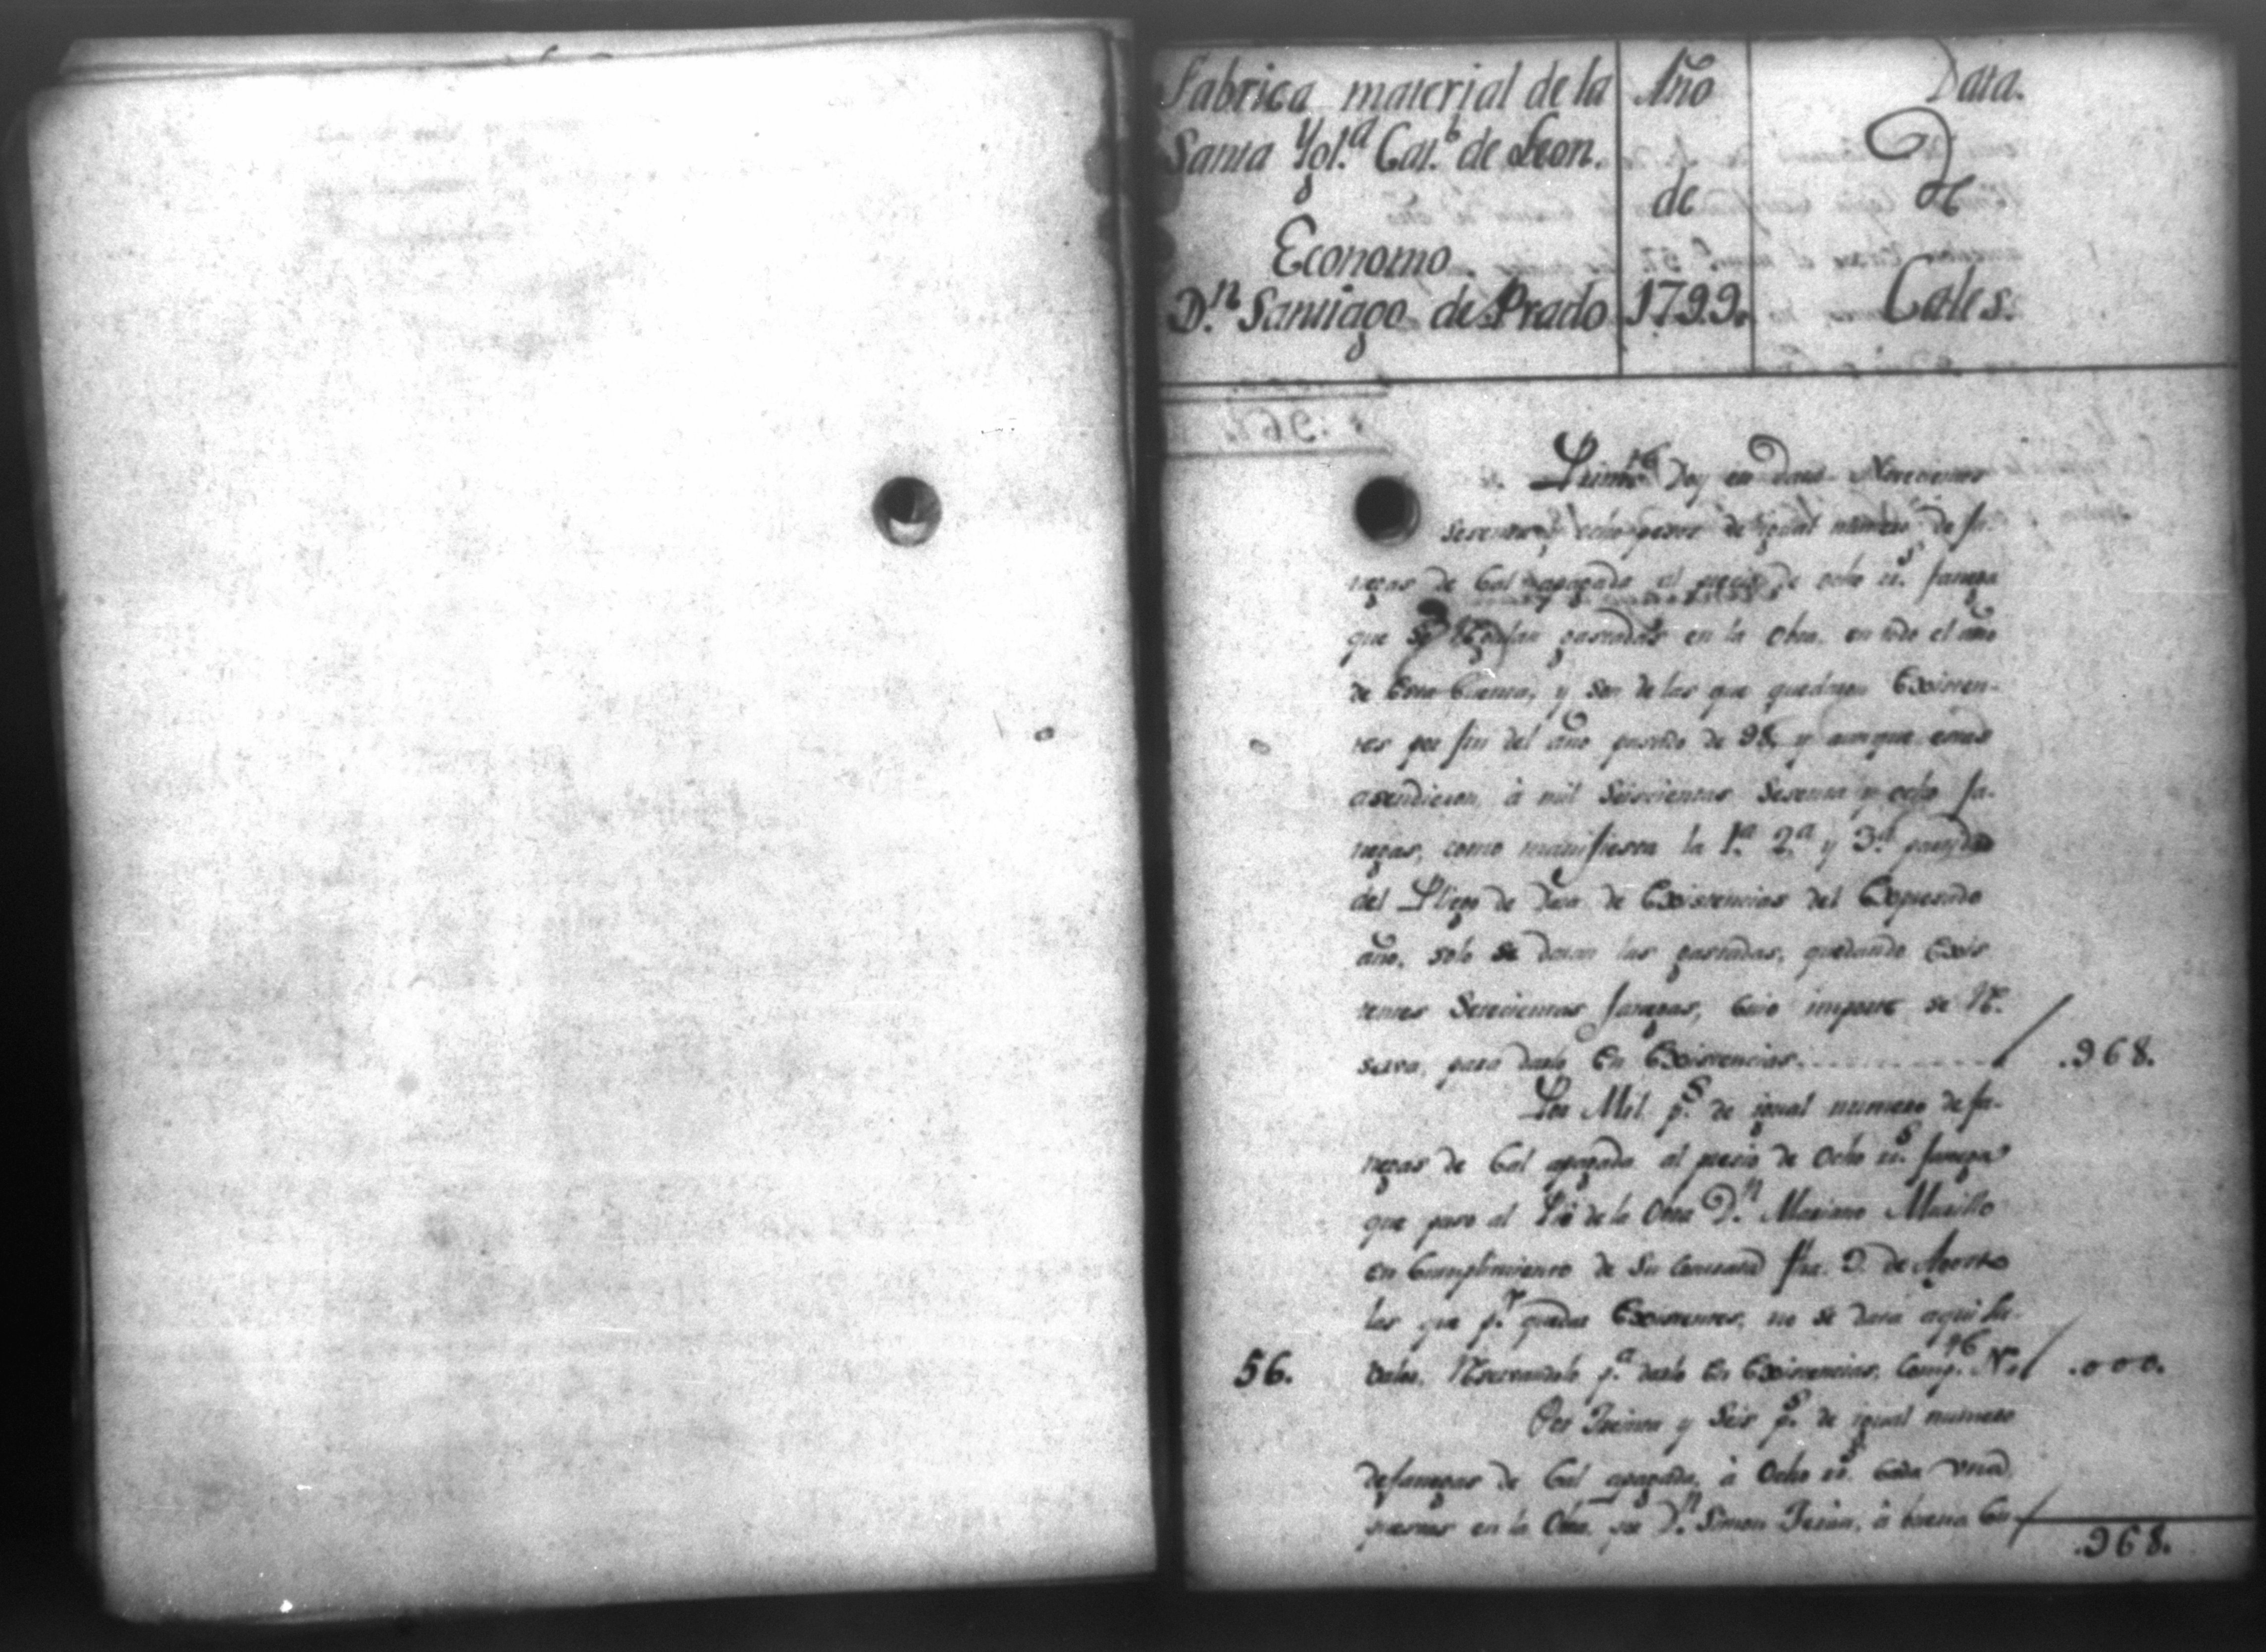 Fabrica material de la
Santa Ygl.ª Cat.ˡ de Leon.
Economo
D.ⁿ Santiago de Prado
Año
de
1799.
Data.
De
Cales.
Primte Doy en Data Novecientos
sesenta y ocho pesos de igual numero de fa-
negas de Cal apagada al precio de ocho rr.ˢ fanega
que se regulan gastadas en la Obra en todo el año
de Esta Cuenta, y son de las que quedaron Existen-
tes por fin del año pasado de 98, y aunque estas
asendieron à mil seiscientas sesenta y ocho fa-
negas, como manifiesta la 1.ª 2.ª y 3.ª partida
del Pliego de Data de Existencias del Expresado
año, solo se datan las gastadas, quedando Exis
tentes Setecientas fanegas, cuio importe se Re-
serva, para darlo En Existencias. .968.
Por Mil p.ˢ de igual numero de fa-
negas de Cal apagada al precio de Ocho rr.ˢ fanega
que puso al Pie de la Obra D.ⁿ Mariano Murillo
en Cumplimiento de Su Contrata fha. 9. de Agosto
las que p.ʳ quedar Existentes, no se data aqui su
56. valor, Reservandolo p.ª darlo En Existencias. Comp.ᵗᵉ N.º .000.
Por Treinta y Seis p.ˢ de igual numero
de fanegas de Cal apagada, à Ocho rr.ˢ Cada Una
puestas en la Obra, por D.ⁿ Simon Teran, à buena Cu-
.968.